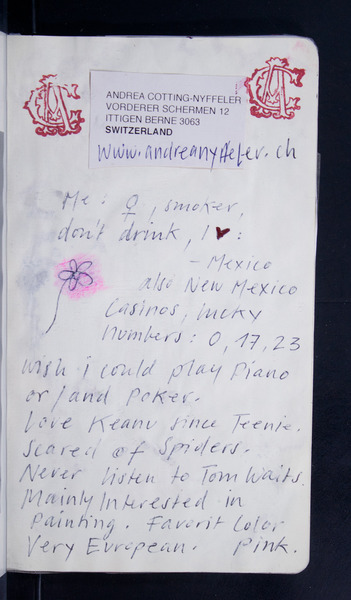 ANDREA COTTING-NYFFELER
VORDERER SCHERMEN 12
ITTIGEN BERNE 3063
SWITZERLAND
www.andreanyffeler.ch
Me: ♀, smoker,
don't drink, I ♥:
- Mexico
also New Mexico
Casinos, lucky
numbers: 0, 17, 23
wish i could play Piano
or/and Poker.
Love Keanu since Teenie.
Scared of Spiders.
Never listen to Tom Waits.
Mainly Interested in
Painting. Favorit Color
Very European. Pink.